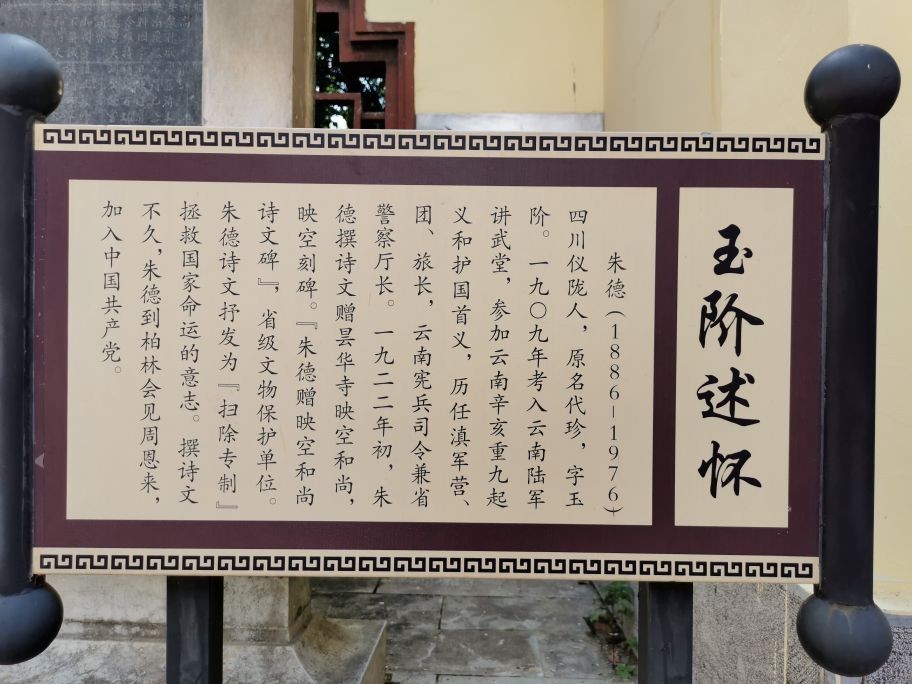 玉阶述怀
朱德(1886-1976)
四川仪陇人，原名代珍，字玉
阶。一九〇九年考入云南陆军
讲武堂，参加云南辛亥重九起
义和护国首义，历任滇军营、
团、旅长，云南宪兵司令兼省
警察厅长。一九二二年初，朱
德撰诗文赠昙华寺映空和尚，
映空刻碑。『朱德赠映空和尚
诗文碑』，省级文物保护单位。
朱德诗文抒发为『扫除专制』
拯救国家命运的意志。撰诗文
不久，朱德到柏林会见周恩来，
加入中国共产党。